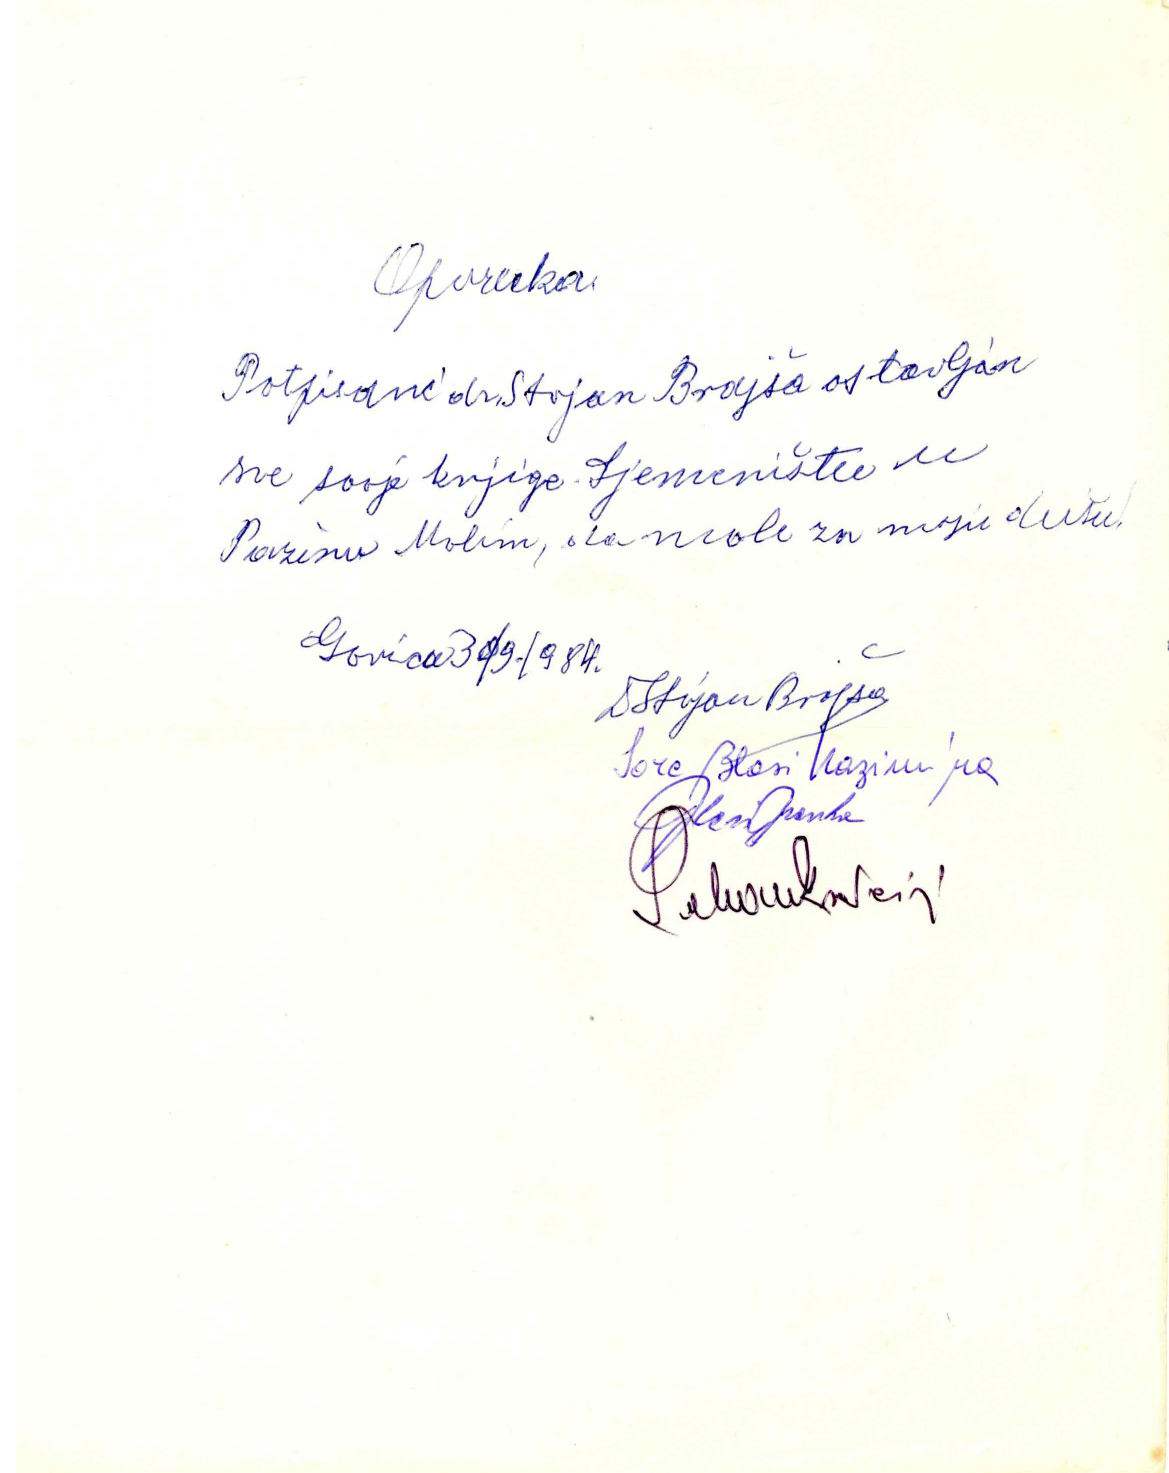 Oporuka.
Potpisani dr. Stojan Brajša ostavljan
sve svoje knjige Sjemeništu u
Pazinu Molim, da mole za moju dušu!
Gorica 30/9-1984.
Dr Stojan Brajša
Blasi Kazimira
Blasi